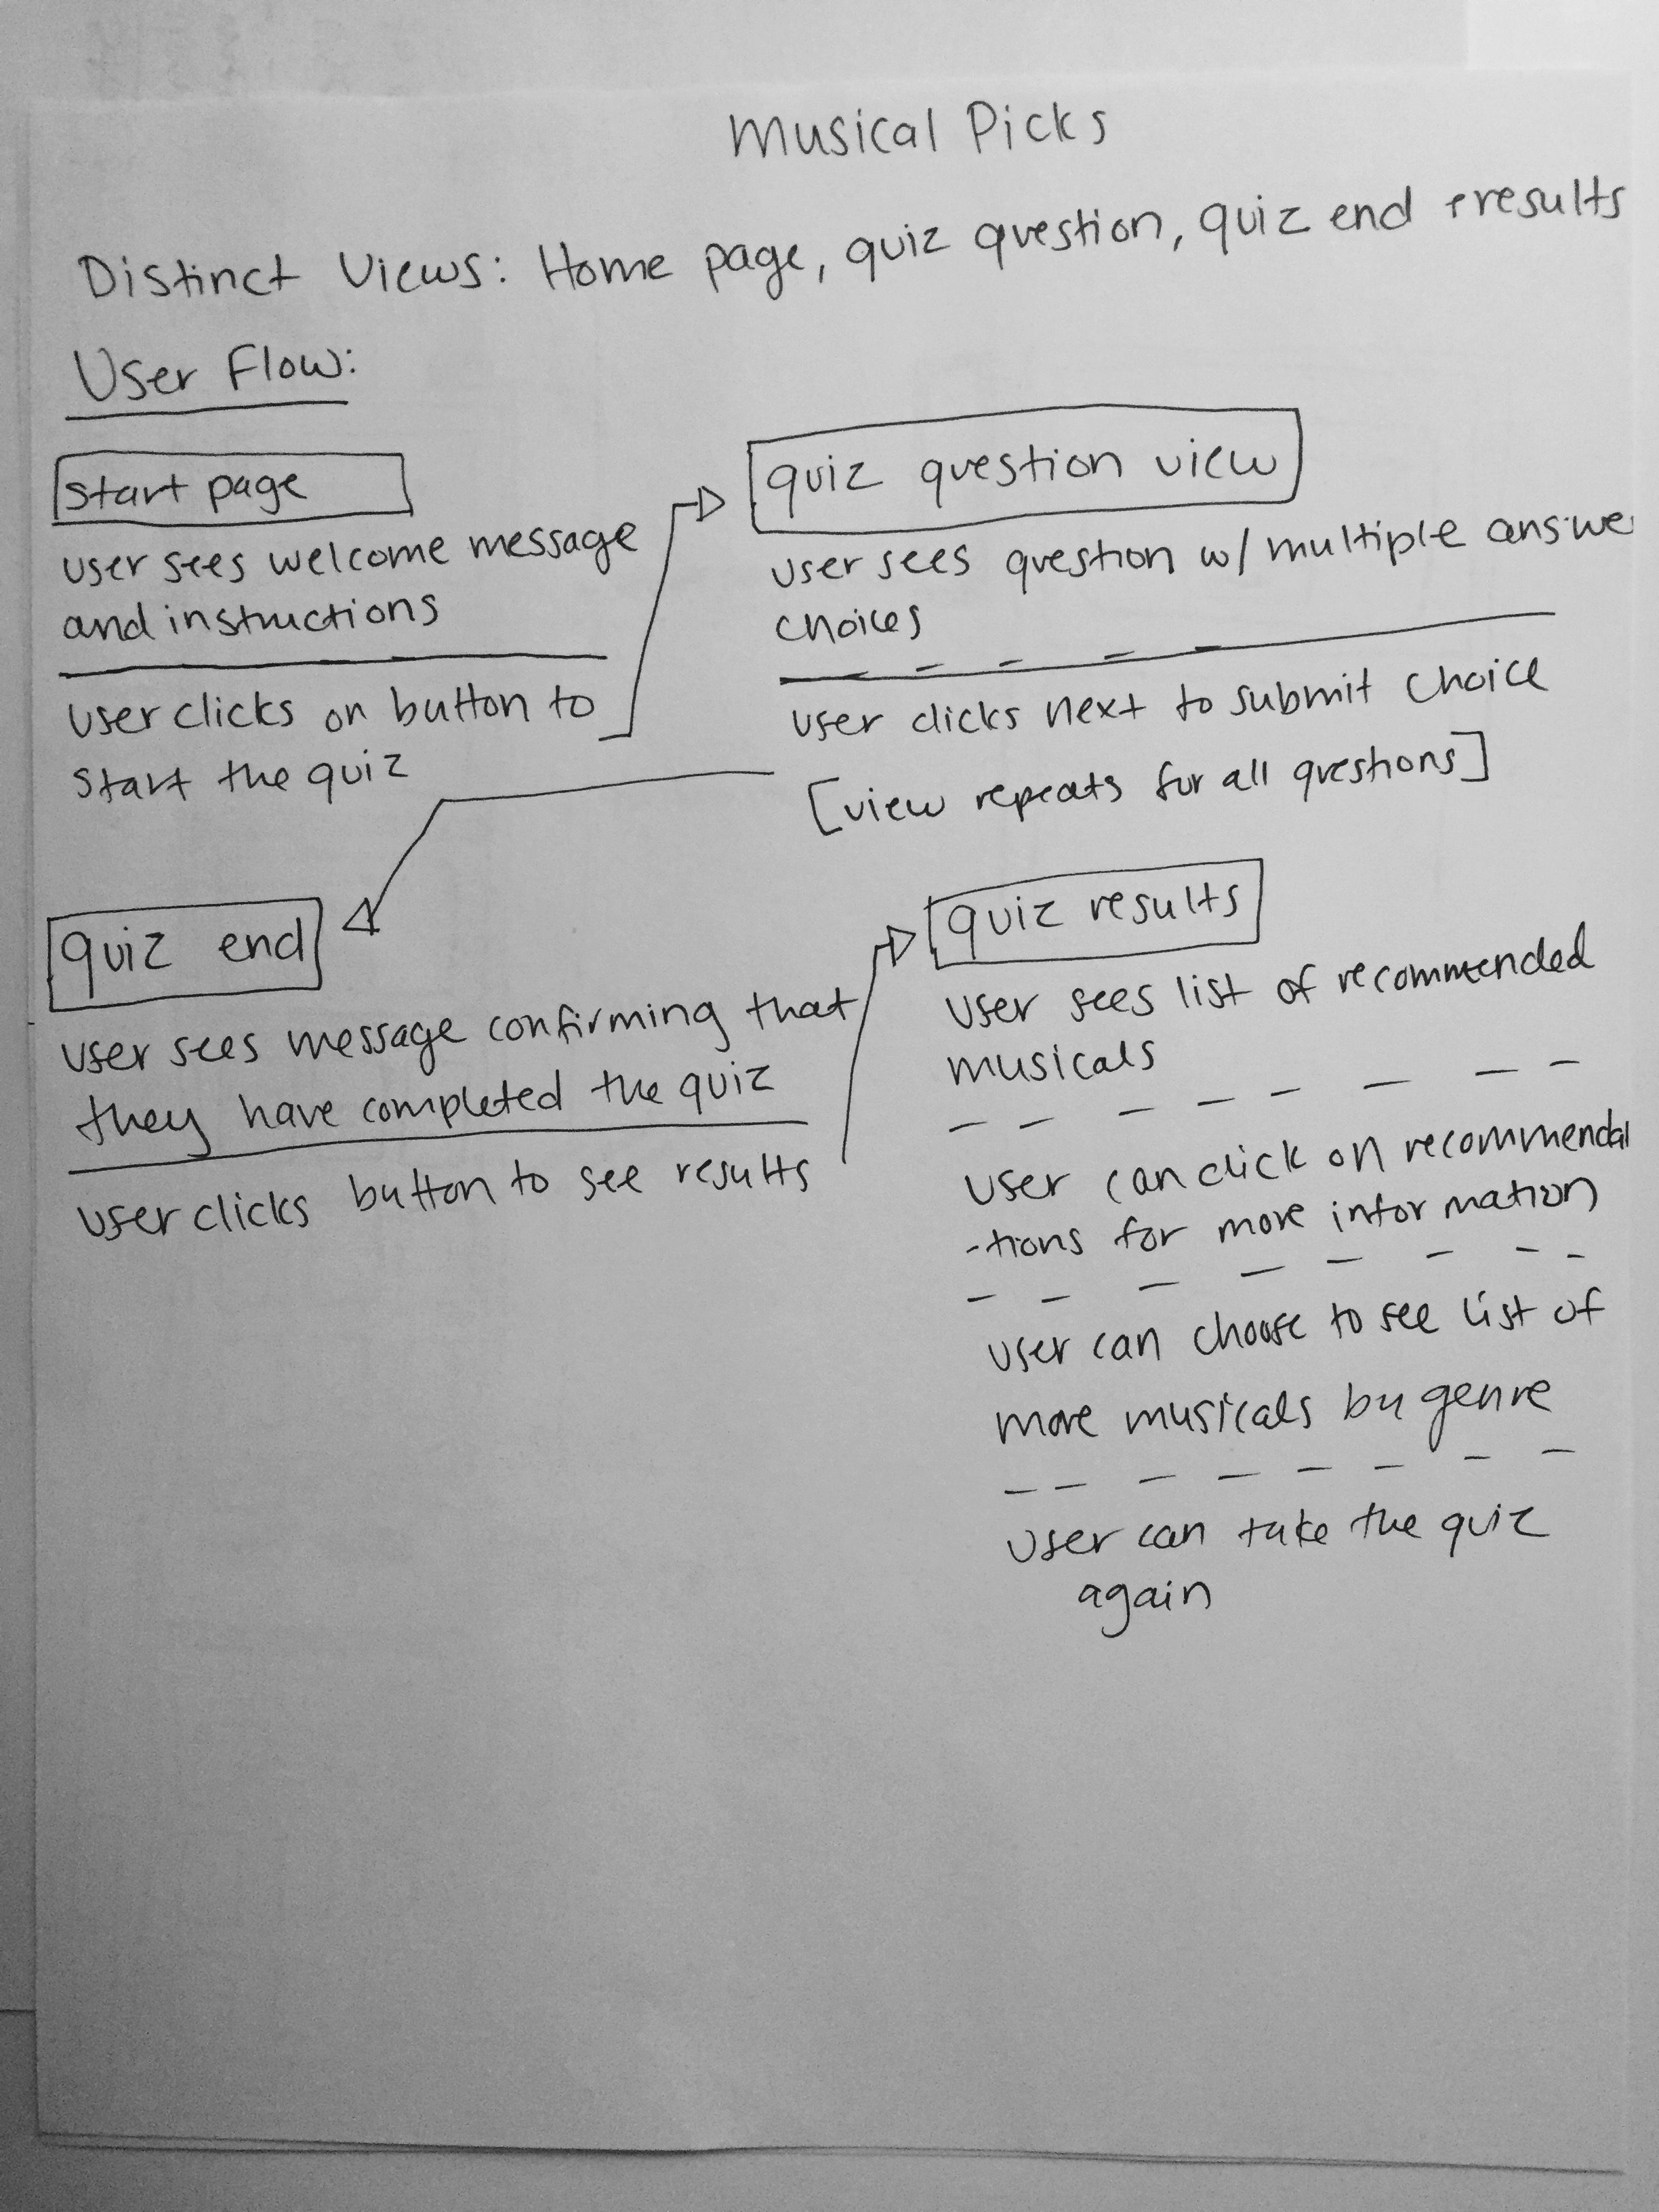 Musical Picks
Distinct Views: Home page, quiz question, quiz end + results
User Flow:
start page
user sees welcome message
and instructions
user clicks on button to
start the quiz
quiz question view
user sees question w/ multiple answe
choices
user clicks next to submit choice
[view repeats for all questions]
quiz end
user sees message confirming that
they have completed the quiz
user clicks button to see results
quiz results
user sees list of recommended
musicals
user can click on recommenda
-tions for more information
user can choose to see list of
more musicals by genre
user can take the quiz
again